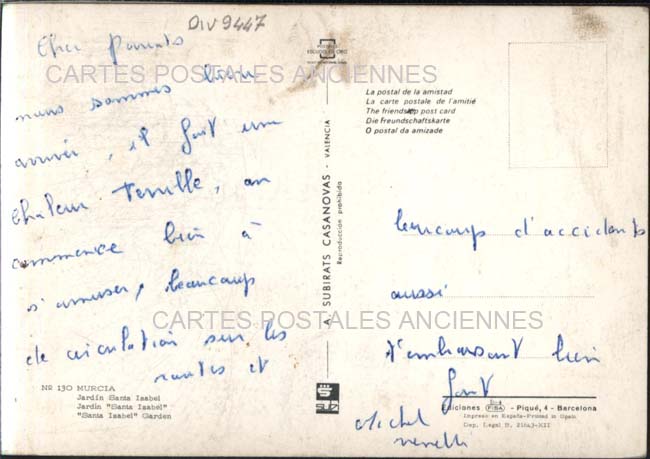 DIV 9447
Cher Parents
CARTES POSTALES ANCIENNES
nous sommes bien
arrivé, il fait une
chaleur terrible, on
commence bien à
s'amuser, beaucoup
de circulation sur les
routes et
Nº 130 MURCIA
Jardín Santa Isabel
Jardin "Santa Isabel"
"Santa Isabel" Garden
A. SUBIRATS CASANOVAS - VALENCIA
Reproducción prohibida
La postal de la amistad
La carte postale de l'amitié
The friendship post card
Die Freundschaftskarte
O postal da amizade
beaucoup d'accidents
aussi
CARTES POSTALES ANCIENNES
t'embrassant bien
fort
Michel
Ediciones FISA - Piqué, 4 - Barcelona
Impreso en España-Printed in Spain
Dep. Legal B. 21643-XII